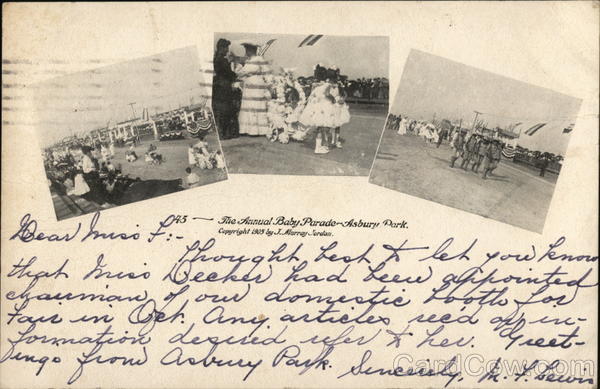 45 — The Annual Baby Parade—Asbury Park.
Copyright 1905 by J. Murray Jordan.
Dear Miss F:-
Thought best to let you know
that Miss Decker had been appointed
chairman of our domestic booth for
Fair in Oct. Any articles rec'd or in-
formation desired refer to her. Greet-
ings from Asbury Park. Sincerely, M. F. Lewis
CardCow.com